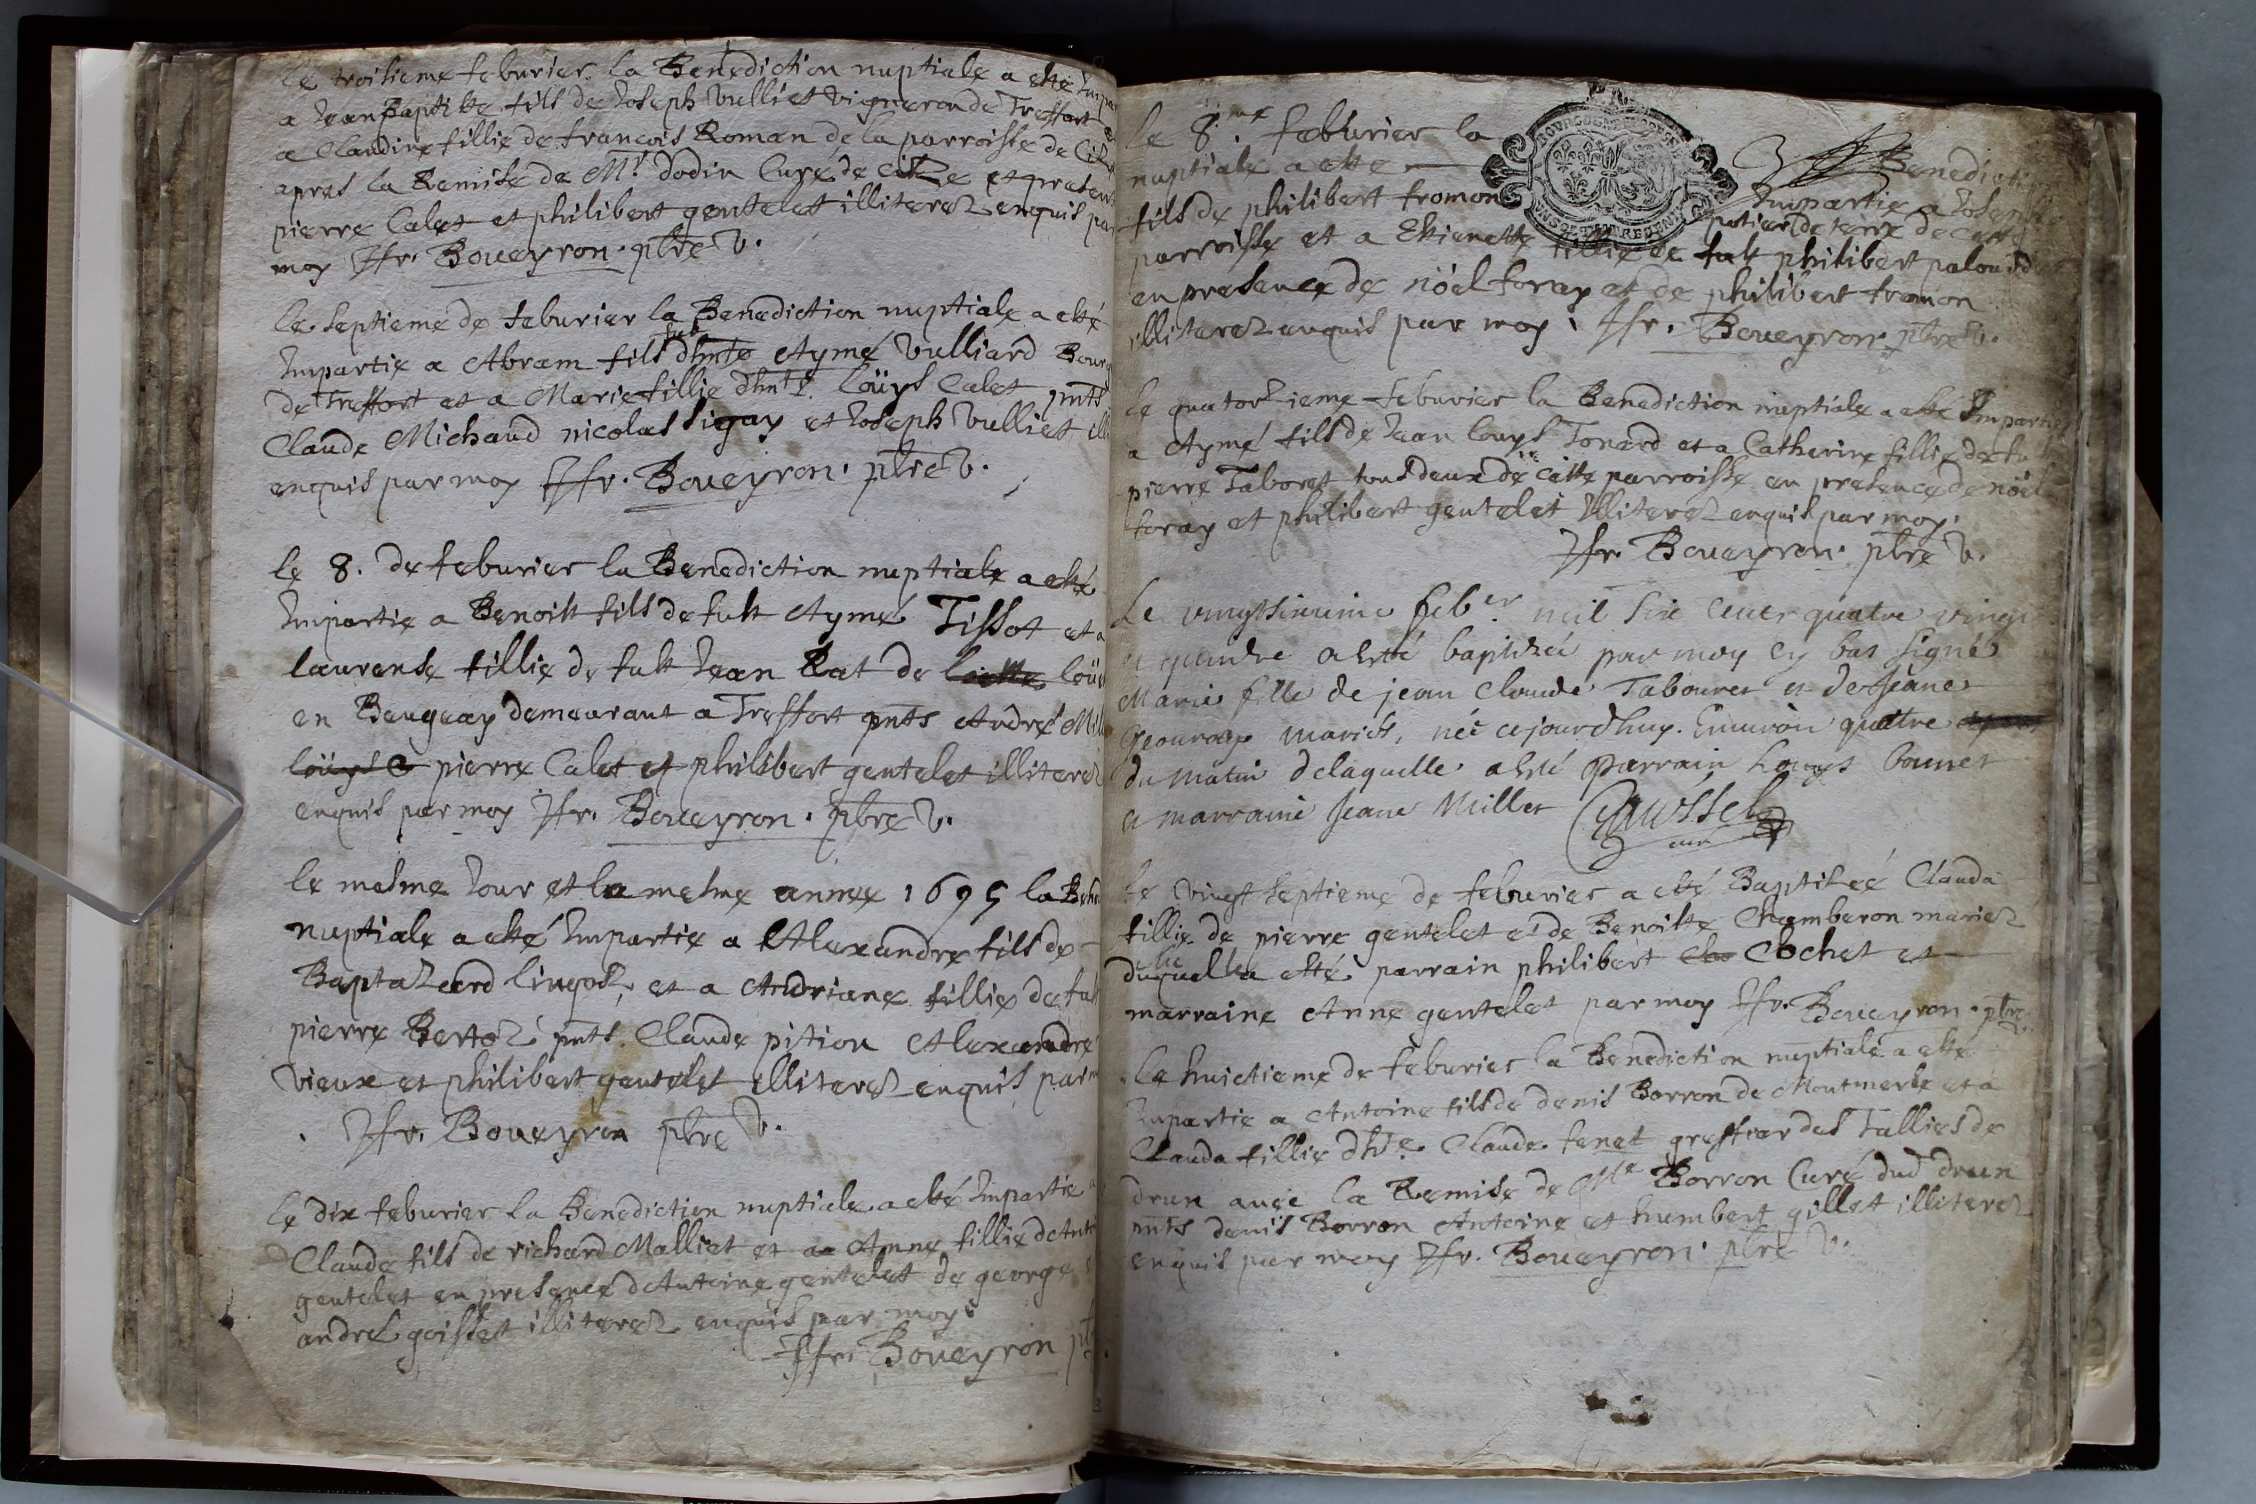 le troisieme feburier la Benediction nuptiale a esté
a Jean Baptiste fils de Joseph Vulliet vigneron de Treffort
a Claudine fillie de francois Roman de la parroisse de
apres la Remise de Mr. dodin Curé de et
pierre Calet et philibert gentelet illiterez enquis par
moy Jfr. Boueyron. pbre v.
le septieme de feburier la Benediction nuptiale a esté
Impartie a Abram fils fut Aymé Vulliard
de Treffort et a Marie fillie Loüys Calet pnts
Claude Michaud nicolas sigay et Joseph Vulliet
enquis par moy Jfr. Boueyron. pbre v.
le 8. de feburier la Benediction nuptiale a esté
Impartie a Benoist fils de fut Aymé Tissot et a
laurense fillie de fut Jean Rat de
en Beugeay demeurant a Treffort pnts André
loüys C pierre Calet et philibert gentelet illiterez
enquis par moy Jfr. Boueyron. pbre v.
le mesme Jour et la mesme année 1695 la
nuptiale a esté Impartie a Alexandre fils de
Baptazard lingoz, et a Andriane fillie de fut
pierre Bertoz pnts. Claude pition Alexandre
vieux et philibert gentelet illiterez enquis par
Jfr. Boueyron pbre v.
le dix feburier la Benediction nuptiale a esté Impartie a
Claude fils de richard Malliet et a Anne fillie
gentelet en presence dAntoine gentelet de george
andré goisset illiterez enquis par moy
Jfr. Boueyron
le 8.me feburier la Benediction
nuptiale a esté Impartie a Joseph
fils de philibert fromon potier de terre de cette
parroisse et a Estienette fillie de fut philibert
en presence de nöel foray et de philibert fromon
illiterez enquis par moy. Jfr. Boueyron. pbre v.
le quatorzieme feburier la Benediction nuptiale a esté Impartie
a Aymé fils de Jean louys Tonard et a Catherine fillie de fut
pierre Taboret tous deux de cette parroisse en presence de nöel
foray et philibert gentelet Illiterez enquis par moy.
Jfr. Boueyron. pbre v.
Le feber. mil six cent quatre vingt
et quinze a esté baptizée par moy cy bas signé
Marie fille de jean Claude Tabouret et de Jeane
mariés, née cejourdhuy. Environ quatre
du matin de laquelle a esté parrain Louys
et marraine Jeane Millet
le vingt septieme de feburier a esté Baptisée Clauda
fillie de pierre gentelet et de Benoitte Chamberon mariez
a esté parrain philibert Cochet et
marraine Anne gentelet par moy Jfr. Boueyron. pbre
le huictieme de feburier la Benediction nuptiale a esté
Impartie a Antoine fils de denis Borron de Montmerle et a
Clauda fillie Claude fenet greffier des Tallies de
drun avec la Remise de Me Borron Curé dud drun
pnts denis Borron Antoine et humbert gillet illiterez
enquis par moy Jfr. Boueyron. pbre v.